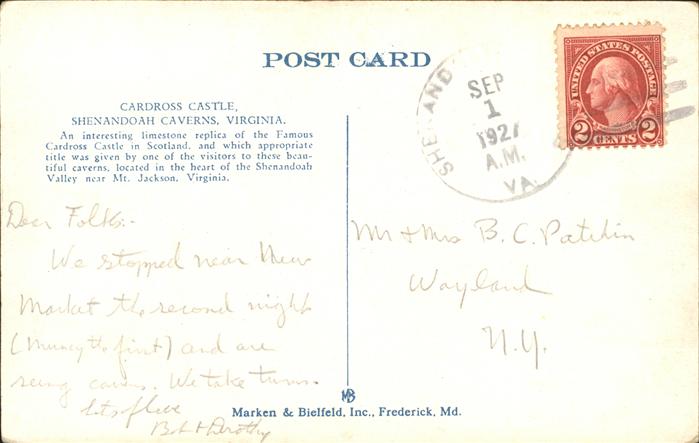 POST CARD
CARDROSS CASTLE,
SHENANDOAH CAVERNS, VIRGINIA.
An interesting limestone replica of the Famous
Cardross Castle in Scotland, and which appropriate
title was given by one of the visitors to these beau-
tiful caverns, located in the heart of the Shenandoah
Valley near Mt. Jackson, Virginia.
SHENAND
SEP
1
1927
A.M.
VA.
UNITED STATES POSTAGE
2 CENTS 2
Dear Folks:-
We stopped near New
Market the second night
(Muncy the first) and are
seeing caves. We take turns.
Lots of love
Bob & Dorothy
Mr & Mrs B. C. Patchin
Wayland
N.Y.
MB
Marken & Bielfeld, Inc., Frederick, Md.